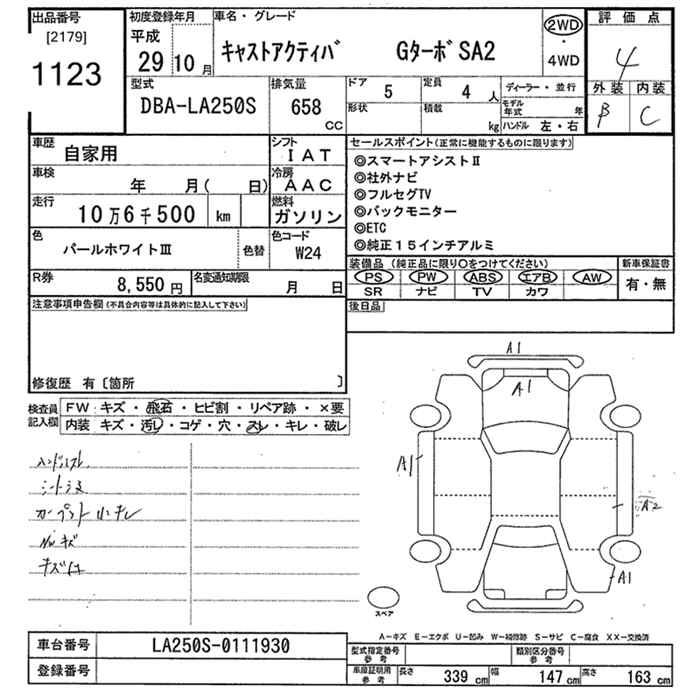 出品番号
[2179]
1123
初度登録年月
平成
29年10月
車名・グレード
キャストアクティバ GターボSA2
2WD
・
4WD
評価点
4
外装 内装
B C
型式
DBA-LA250S
排気量
658
CC
ドア 5
定員 4人
形状
積載 kg
ディーラー・並行
モデル年式 年
ハンドル 左・右
車歴
自家用
シフト
IAT
車検
年 月( 日)
冷房
AAC
走行
10万6千500 km
燃料
ガソリン
色
パールホワイトIII
色替
色コード
W24
R券
8,550円
名変通知期限
月 日
セールスポイント(正常に機能するものに限ります)
◎スマートアシストII
◎社外ナビ
◎フルセグTV
◎バックモニター
◎ETC
◎純正15インチアルミ
装備品(純正品に限り○をつけてください)
PS PW ABS エアB AW
SR ナビ TV カワ
新車保証書
有・無
後日品
注意事項申告欄(不具合内容等は具体的に記入して下さい)
修復歴 有〔箇所 〕
検査員
記入欄
FW キズ・飛石・ヒビ割・リペア跡・×要
内装 キズ・汚レ・コゲ・穴・スレ・キレ・破レ
ハンドルスレ
カーペット
キズ
A1
A1
A1
A2
A1
スペア
A-キズ E-エクボ U-凹み W-補修跡 S-サビ C-腐食 XX-交換済
車台番号
LA250S-0111930
登録番号
型式指定番号
参考
類別区分番号
参考
車庫証明用
参考
長さ 339 cm
幅 147 cm
高さ 163 cm